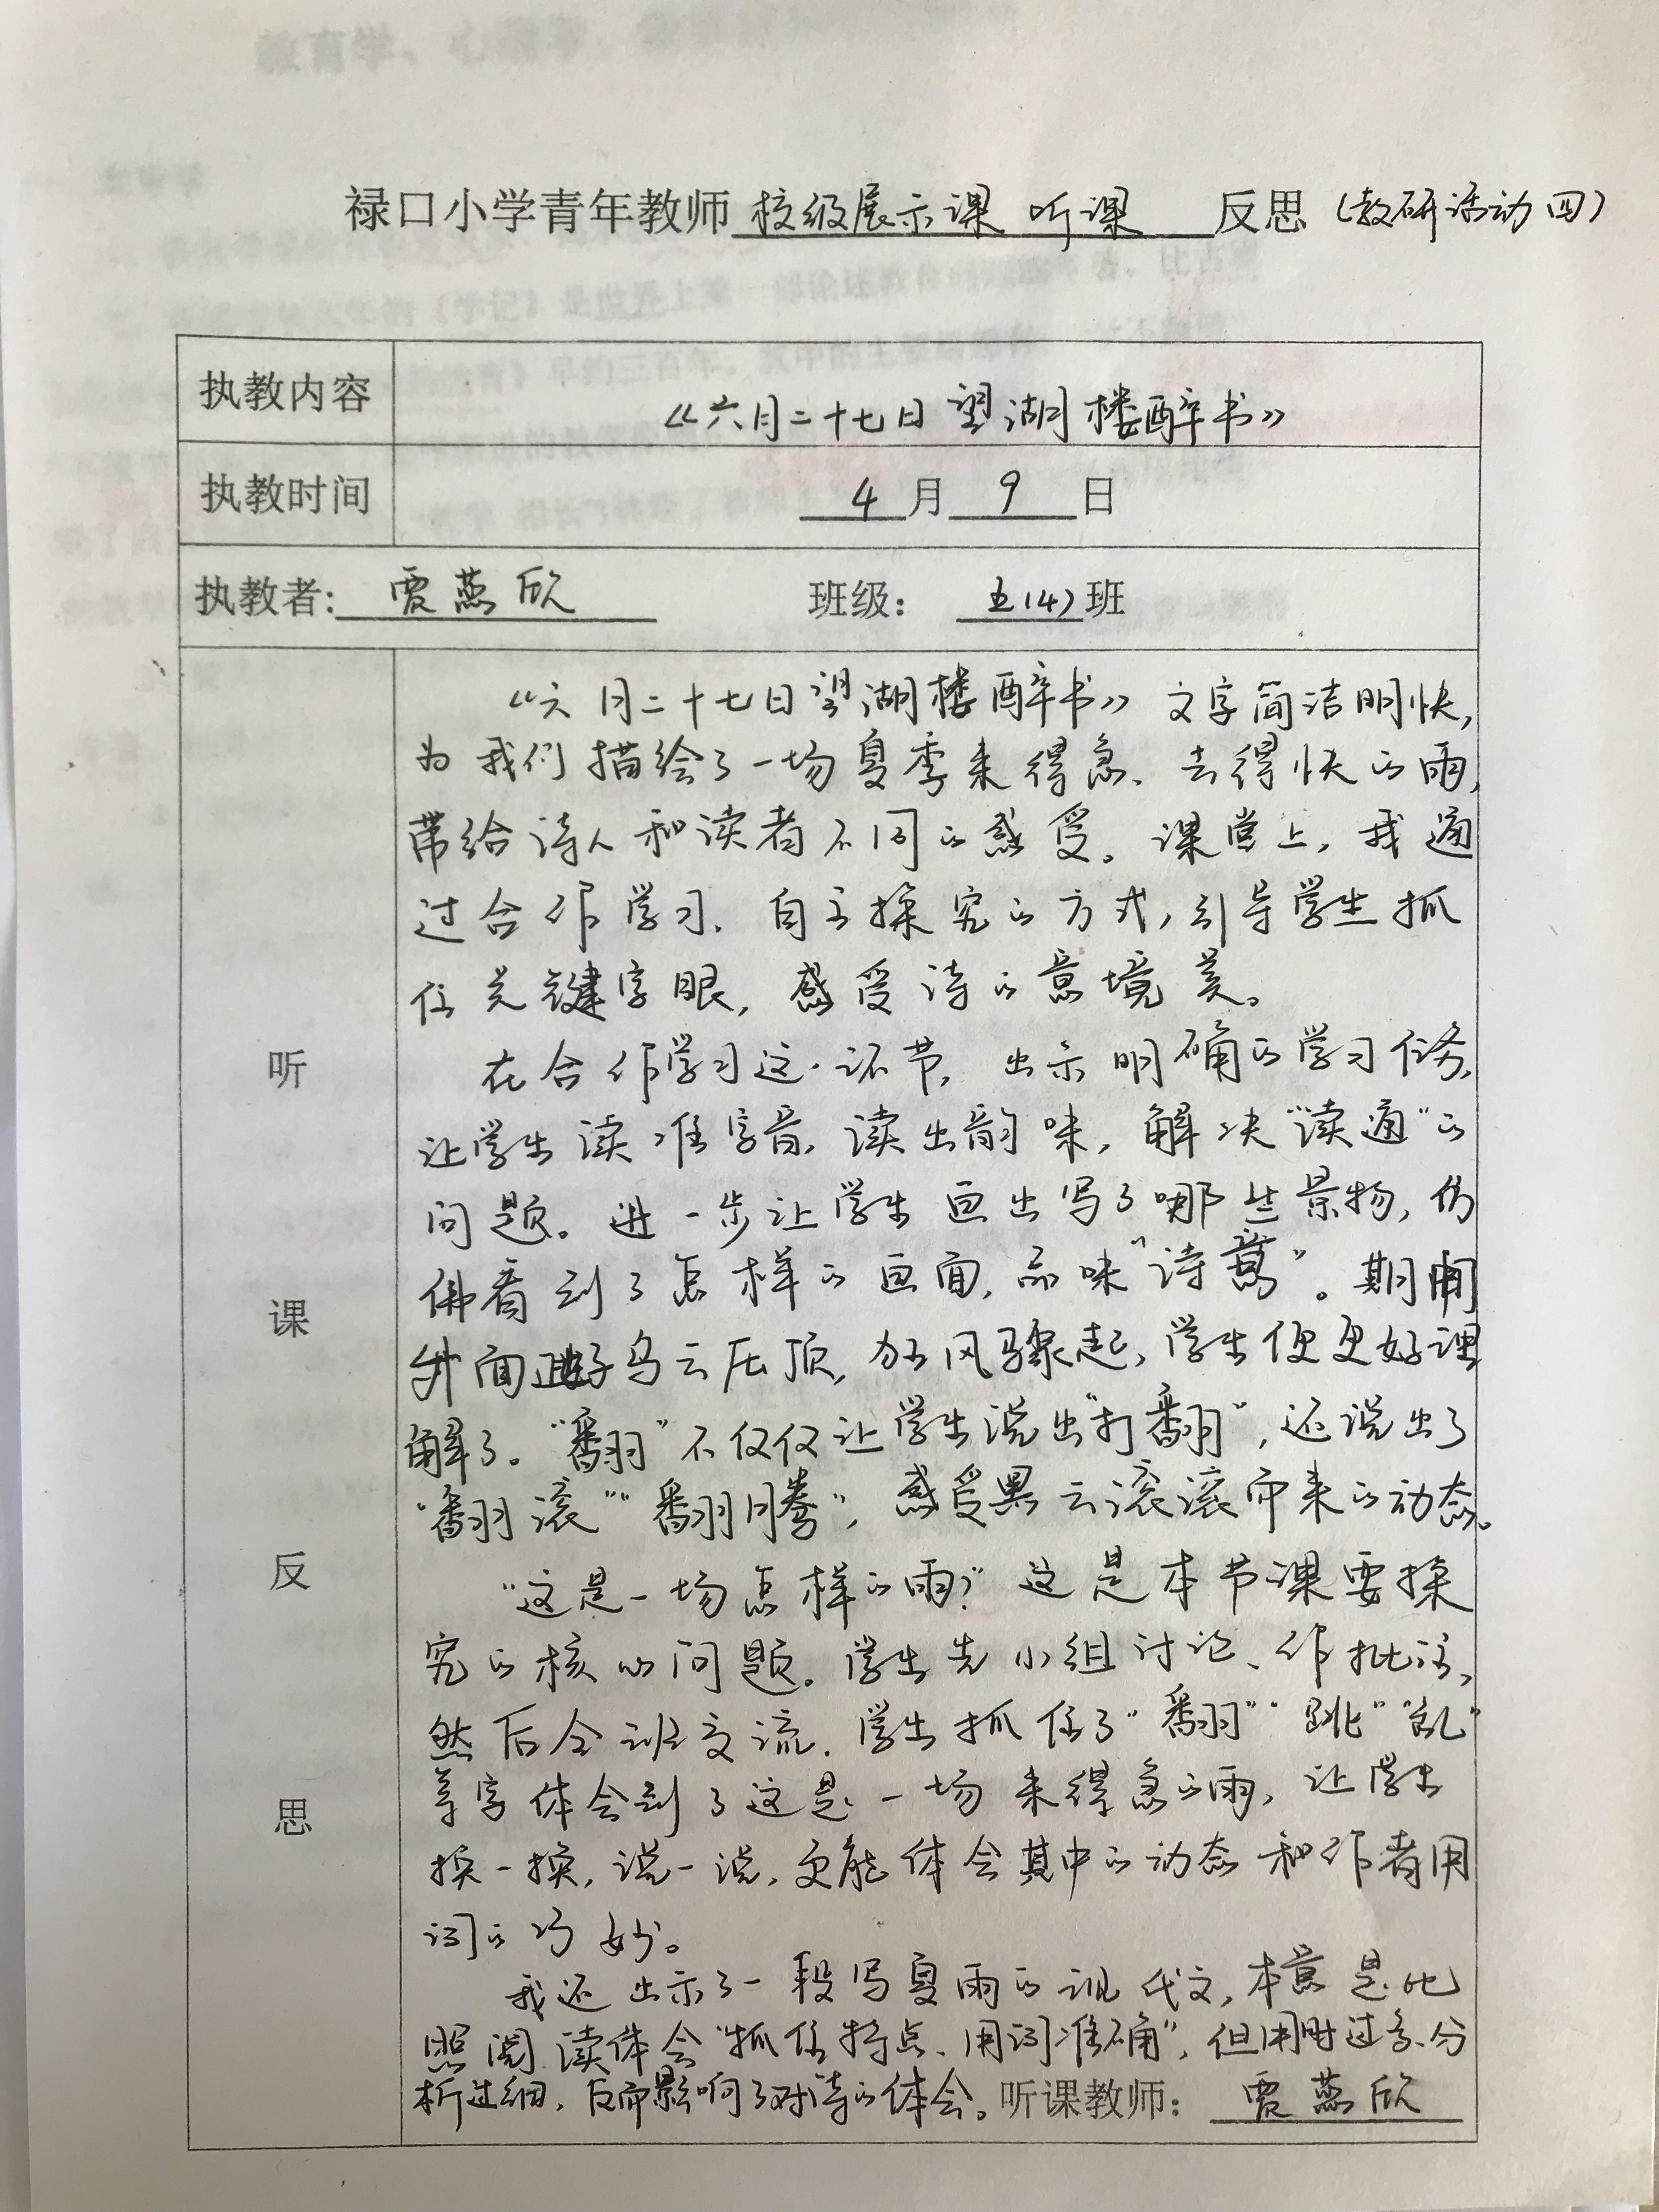 禄口小学青年教师 校级展示课 听课 反思（教研活动四）
执教内容 《六月二十七日望湖楼醉书》
执教时间 4月9日
执教者: 贾燕欣 班级: 五(4)班
听课反思
《六月二十七日望湖楼醉书》文字简洁明快，
为我们描绘了一场夏季来得急、去得快的雨，
带给诗人和读者不同的感受。课堂上，我通
过合作学习、自主探究的方式，引导学生抓
住关键字眼，感受诗的意境美。
在合作学习这一环节，出示明确的学习任务，
让学生读准字音，读出韵味，解决“读通”的
问题。进一步让学生画出写了哪些景物，仿
佛看到了怎样的画面，品味“诗意”。期间
外面正好乌云压顶，狂风骤起，学生便更好理
解了。“翻”不仅仅让学生说出“打翻”，还说出了
“翻滚”“翻腾”，感受黑云滚滚而来的动态。
“这是一场怎样的雨？”这是本节课要探
究的核心问题。学生先小组讨论、作批注，
然后全班交流。学生抓住了“翻”“跳”“乱”
等字体会到了这是一场来得急的雨，让学生
换一换，说一说，更能体会其中的动态和作者用
词的巧妙。
我还出示了一段写夏雨的现代文，本意是比
照阅读体会“抓住特点、用词准确”，但用时过多、分
析过细，反而影响了对诗的体会。听课教师: 贾燕欣